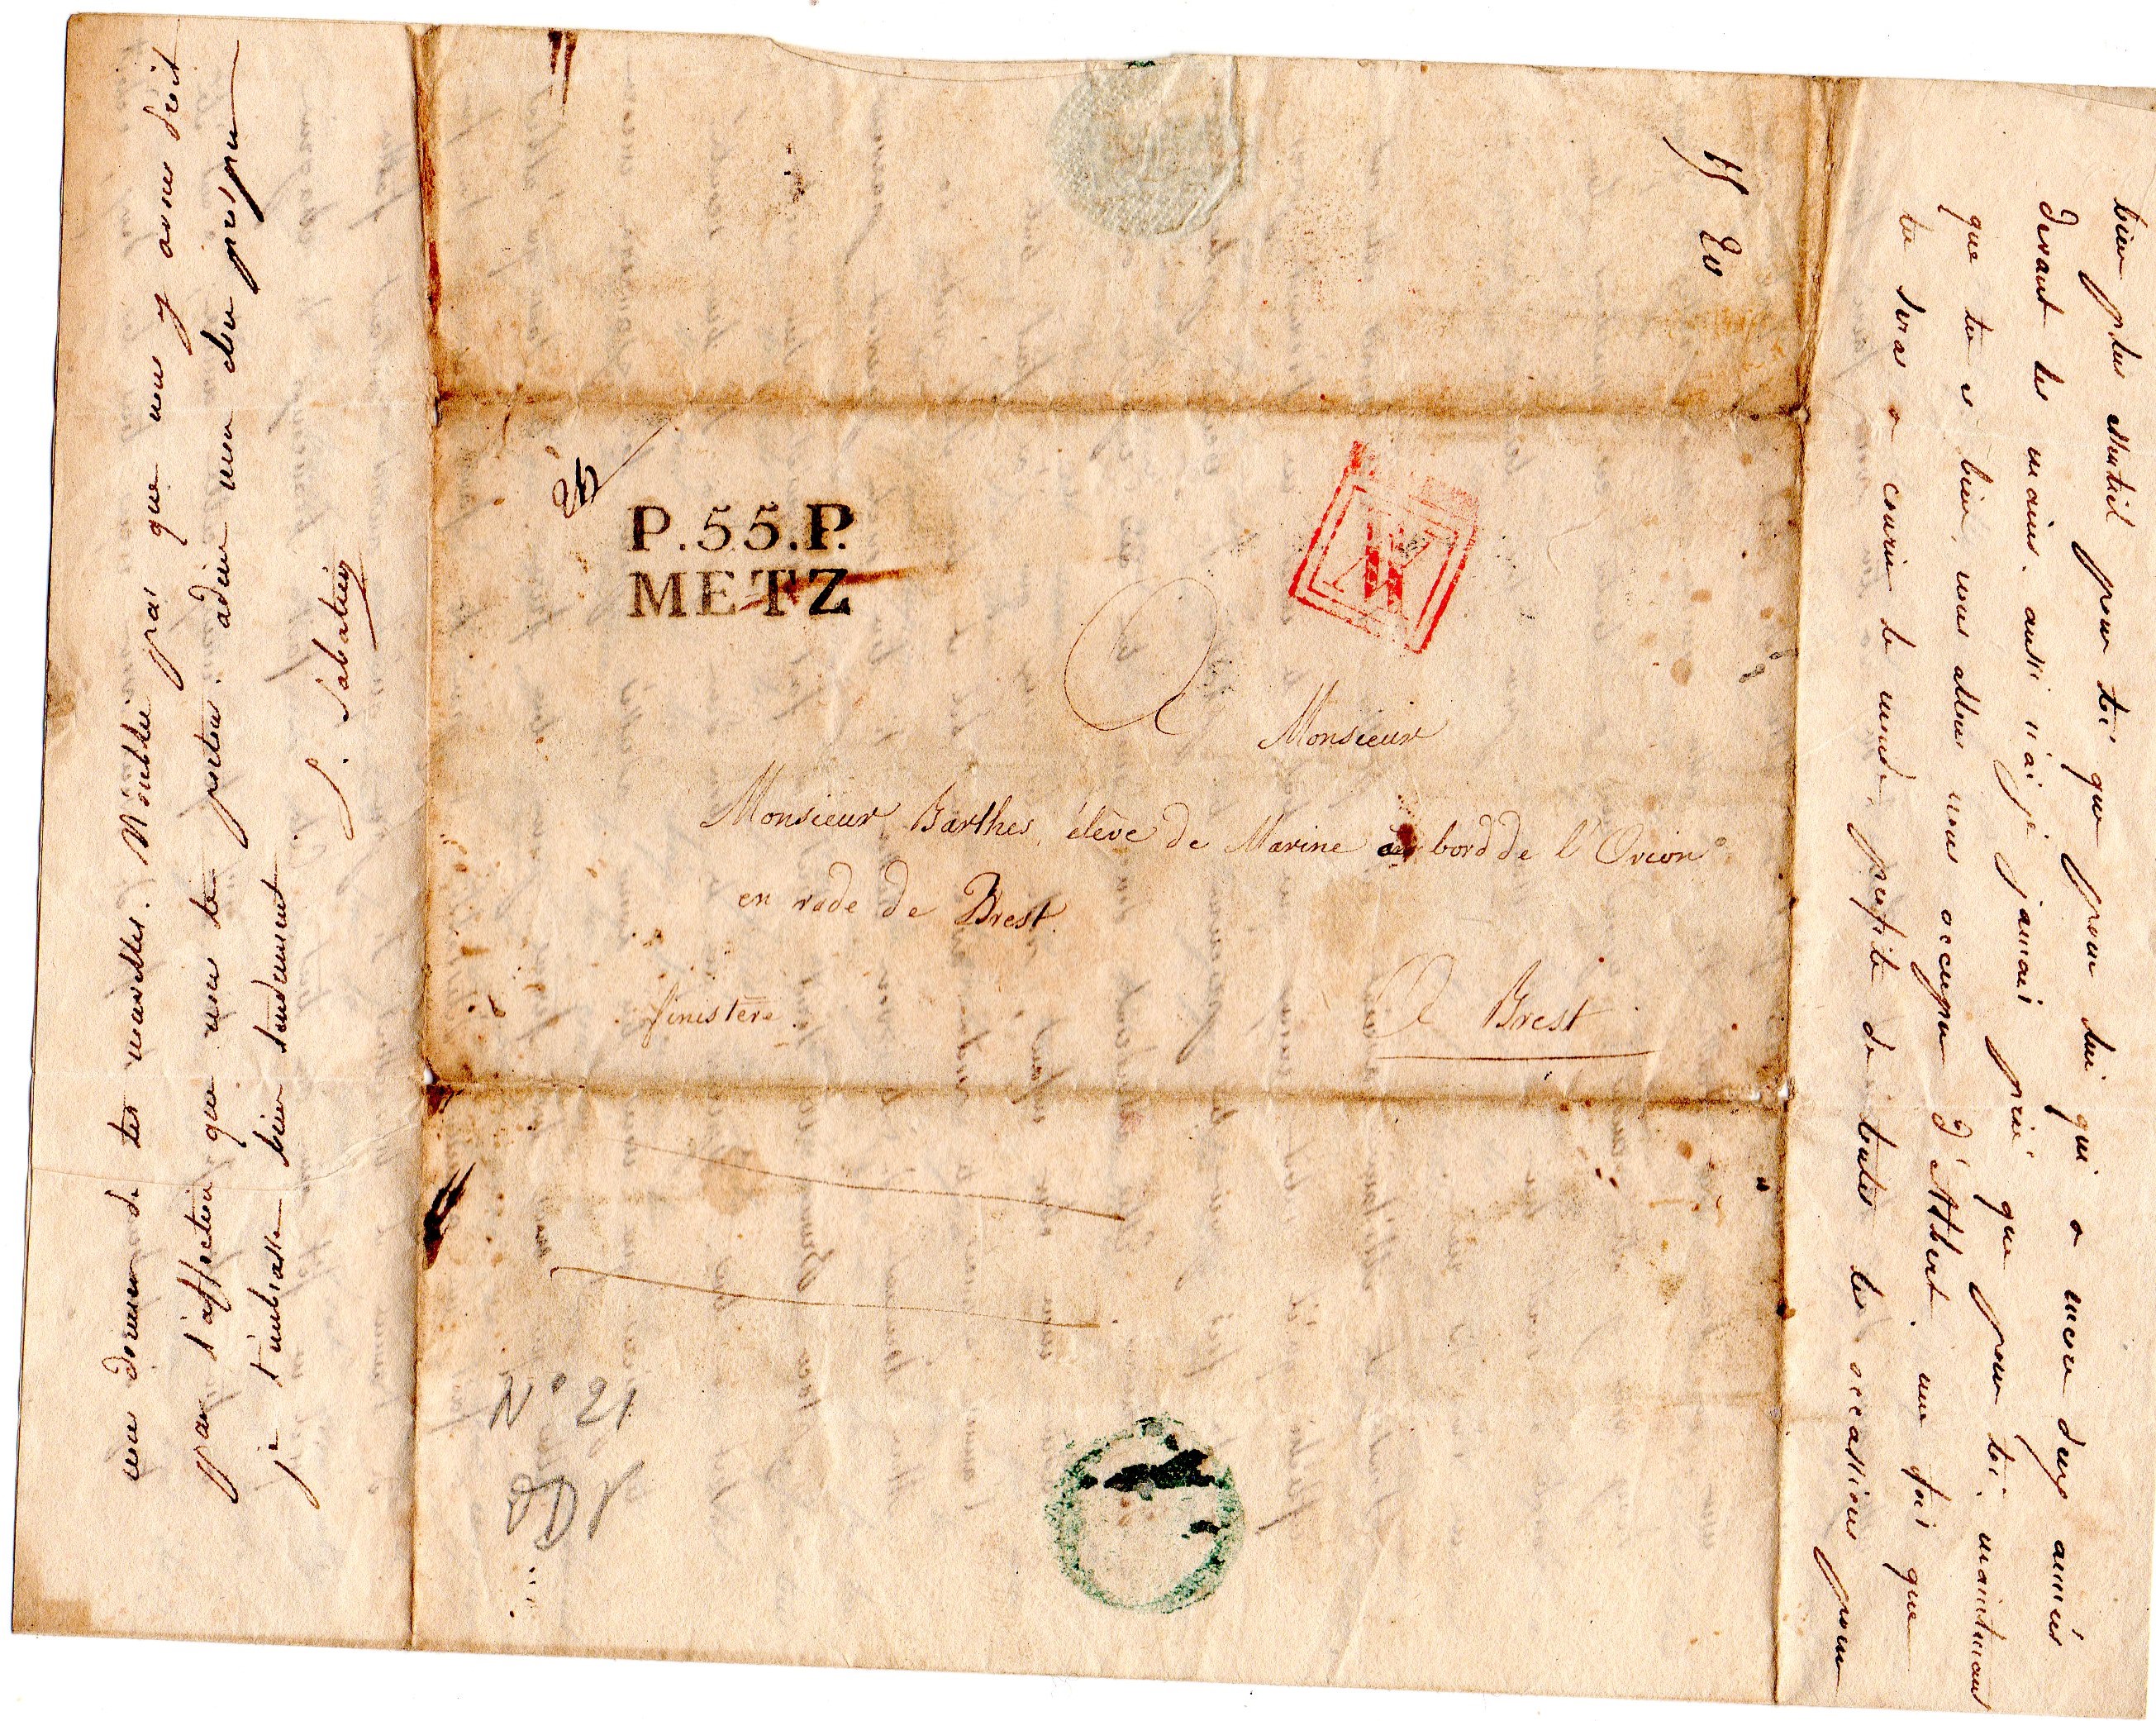 bien plus utile pour toi que pour lui qui a encore deux années
devant les mains. aussi n'ai je jamais prié que pour toi. maintenant
que tu es bien, nous allons nous occuper d'Albert. une fois que
tu seras a courir le monde, profite de toutes les occassions pour
nous donner de tes nouvelles. N'oublie pas que nous y avons droit
par l'affection que nous te portons. adieu mon cher prosper
je t'embrasse bien tendrement
J. Sabatier
P.55.P.
METZ
A
Monsieur
Monsieur Barthes, élève de Marine à bord de l'Orion
en rade de Brest.
finistère.
A Brest
N° 21